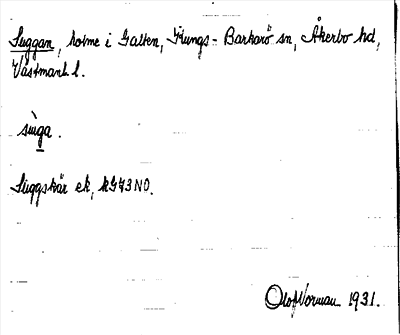 Suggan, holme i Galten, Kungs-Barkarö sn, Åkerbo hd,
Västmanl. l.
sùga.
Suggskär ek, kG 73 NO.
Olof Norman 1931.